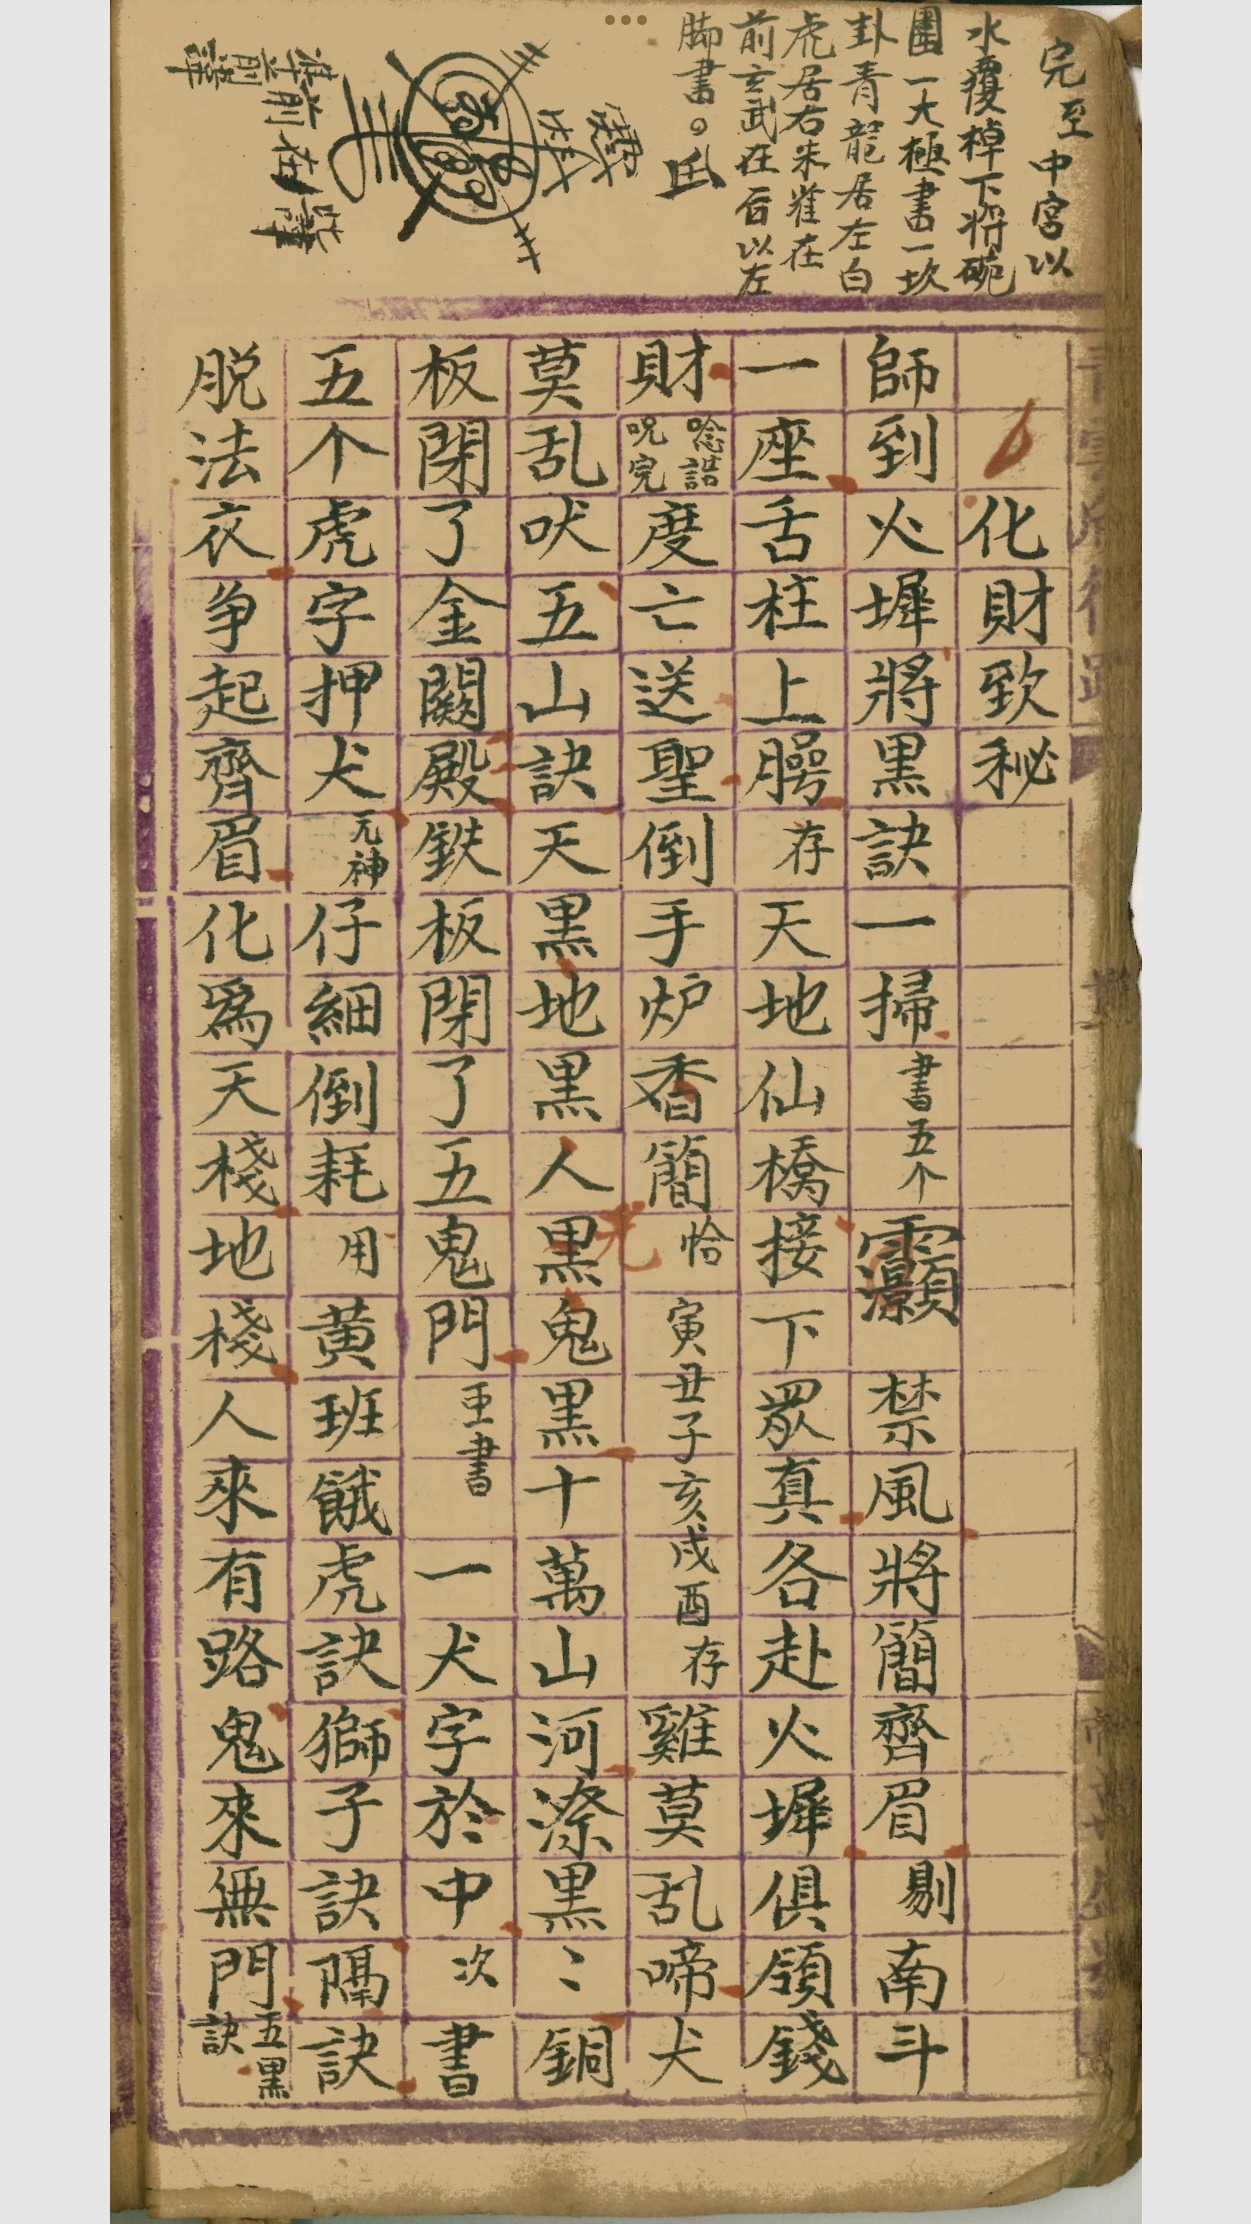 完至中宮以
水覆棹下將碗
圕一大極書一坎
卦青龍居左白
虎居右朱雀在
前玄武在后以左
脚書
化財致秘
師到火墀將黑訣一掃書五个灝禁風將簡齊眉剔南斗
一座舌柱上腭存天地仙橋接下眾真各赴火墀俱領錢
財唸誥呪完度亡送聖倒手炉香簡恰寅丑子亥戌酉存雞莫乱啼犬
莫乱吠五山訣天黑地黑人黑鬼黑十萬山河漆黑〻銅
板閉了金闕殿鉄板閉了五鬼門亜書一犬字於中次書
五个虎字押犬元神仔細倒耗用黄班餓虎訣獅子訣隔訣
脱法衣争起齊眉化爲天棧地棧人來有路鬼來無門五黑訣